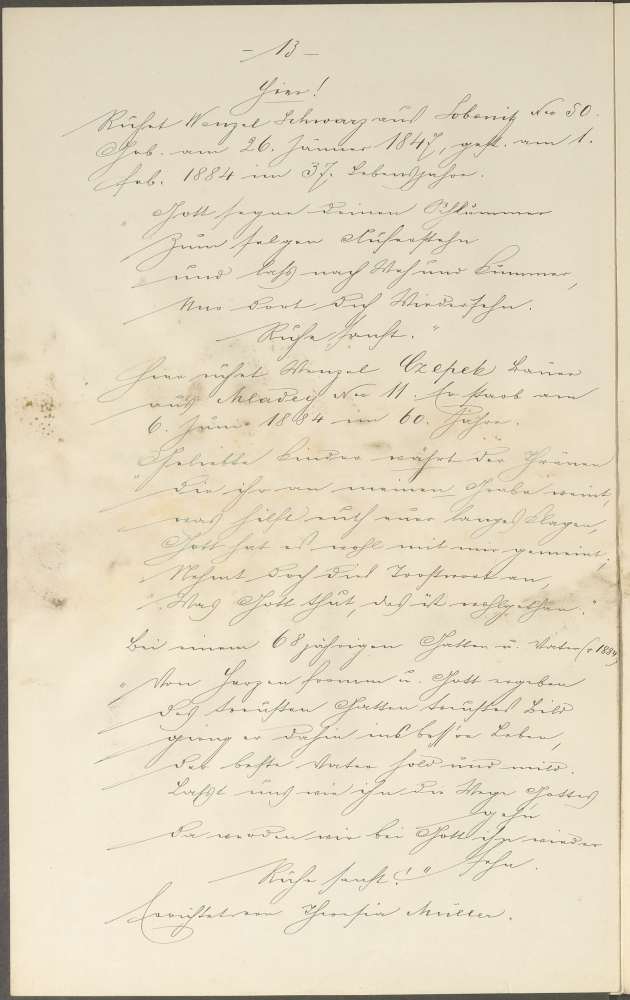 - 13 -
Hier!
Ruhet Wenzel Schwarz aus Lobenitz Nro 50.
Geb. am 26. Jänner 1847, gest. am 1.
Feb. 1884 im 37. Lebensjahre.
Gott segne deinen Schlummer
Zum selgen Auferstehn
und lass nach Weh und Kummer,
Uns dort dich Wiedersehn.
Ruhe sanft."
Hier ruhet Wenzel Czepek Bauer
aus Mladecz Nro 11. Er starb am
6. Juni 1884 im 60. Jahre.
"Geliebte Kinder wehrt der Thränen
Die ihr an meinem Grabe weint,
was hilft euch euer langes Klagen,
Gott hat es wohl mit mir gemeint;
Nehmt doch dies Trostwort an,
Was Gott thut, das ist wohlgethan."
Bei einem 68 jährigen Gatten u. Vater († 1884)
"Von Herzen fromm u. Gott ergeben
Des treusten Gatten treustes Bild
ging er dahin ins bess're Leben,
Der beste Vater hold und mild.
Lasst uns wie ihn die Wege Gottes
gehn
Da werden wir bei Gott ihn wieder
sehn.
Ruhe sanft!"
Errichtet von Theresia Müller.